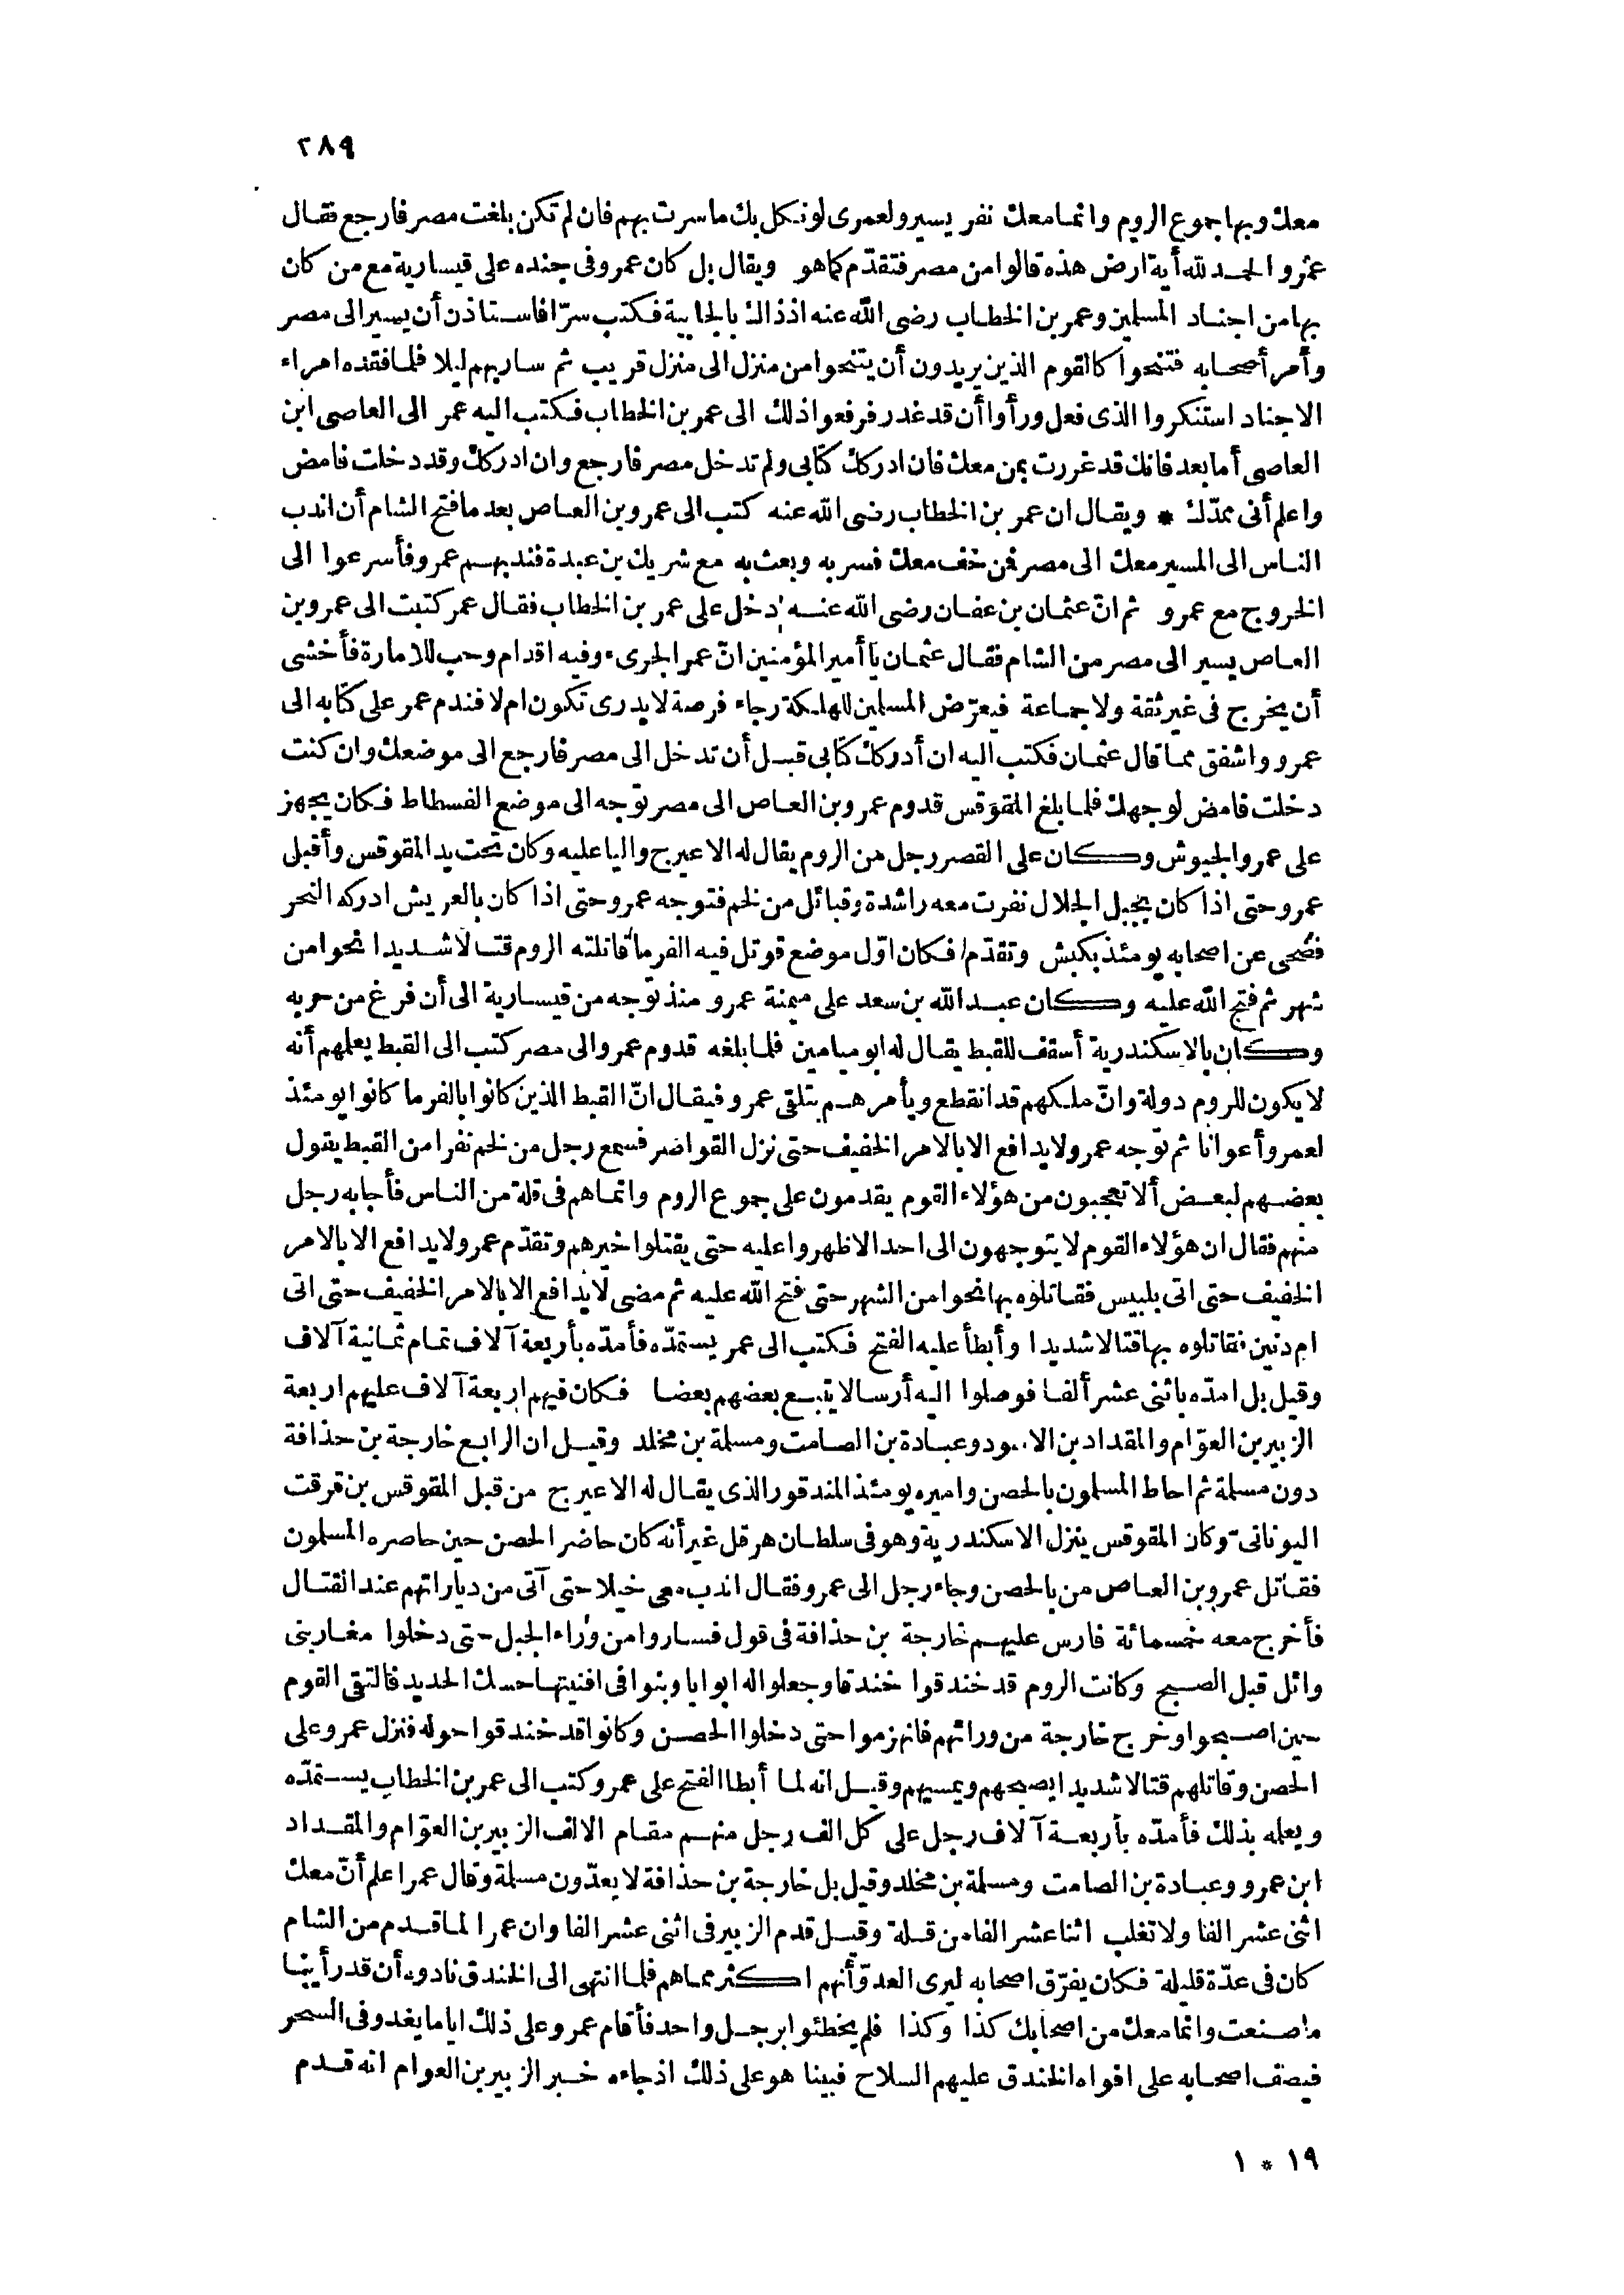 ٢٨٩
معك وبها جموع الروم وانما معك نفر يسير ولعمرى لو نكل بك ما سرت بهم فان لم تكن بلغت مصر فارجع فقال
عمرو الحمد لله أية ارض هذه قالوا من مصر فتقدّم كما هو ويقال بل كان عمرو فى جنده على قيسارية مع من كان
بها من اجناد المسلين وعمر بن الخطاب رضى الله عنه اذ ذاك بالجابية فكتب سرّا فاستاذن أن يسير الى مصر
وأمر أصحابه فتنحوا كالقوم الذين يريدون أن يتنحوا من منزل الى منزل قريب ثم سار بهم ليلا فلما فقده امراء
الاجناد استنكروا الذى فعل ورأوا أن قد غدر فرفعوا ذلك الى عمر بن الخطاب فكتب اليه عمر الى العاصى ابن
العاصى أما بعد فانك قد غررت بمن معك فان ادركك كتابى ولم تدخل مصر فارجع وان ادركك وقد دخلت فامض
واعلم أنى ممدّك * ويقال ان عمر بن الخطاب رضى الله عنه كتب الى عمرو بن العاص بعد ما فتح الشام أن اندب
الناس الى المسير معك الى مصر فمن خف معك فسر به وبعث به مع شريك بن عبدة فندبهم عمرو فأسرعوا الى
الخروج مع عمرو ثم انّ عثمان بن عفان رضى الله عنه دخل على عمر بن الخطاب فقال عمر كتبت الى عمرو بن
العاص يسير الى مصر من الشام فقال عثمان يا أمير المؤمنين انّ عمرا لجرىء وفيه اقدام وحب للامارة فأخشى
أن يخرج فى غير ثقة ولا جماعة فيعرّض المسلين للهلكة رجاء فرصة لا يدرى تكون ام لا فندم عمر على كتابه الى
عمرو واشفق مما قال عثمان فكتب اليه ان أدركك كتابى قبل أن تدخل الى مصر فارجع الى موضعك وان كنت
دخلت فامض لوجهك فلما بلغ المقوقس قدوم عمرو بن العاص الى مصر توّجه الى موضع الفسطاط فكان يجهز
على عمرو الجيوش وكان على القصر رجل من الروم يقال له الاعيرج واليا عليه وكان تحت يد المقوقس وأقبل
عمرو حتى اذا كان بجبل الجلال نفرت معه راشدة وقبائل من لخم فتوجه عمرو حتى اذا كان بالعريش ادركه النحر
فضحى عن اصحابه يومئذ بكبش وتقدّم فكان اوّل موضع قوتل فيه الفرما قاتلته الروم قتالا شديدا نحوا من
شهر ثم فتح الله عليه وكان عبد الله بن سعد على ميمنة عمرو منذ توّجه من قيسارية الى أن فرغ من حربه
وكان بالاسكندرية أسقف للقبط يقال له ابو ميامين فلما بلغه قدوم عمرو الى مصر كتب الى القبط يعلمهم أنه
لا يكون للروم دولة وانّ ملكهم قد انقطع ويأمرهم بتلقى عمرو فيقال انّ القبط الذين كانوا بالفرما كانوا يومئذ
لعمرو أعوانا ثم توّجه عمرو لا يدافع الا بالامر الخفيف حتى نزل القواصر فسمع رجل من لخم نفرا من القبط يقول
بعضهم لبعض ألا تعجبون من هؤلاء القوم يقدمون على جموع الروم وانماهم فى قلة من الناس فأجابه رجل
منهم فقال ان هؤلاء القوم لا يتوجهون الى احد الا ظهروا عليه حتى يقتلوا خيرهم وتقدّم عمرو لا يدافع الا بالامر
الخفيف حتى اتى بلبيس فقاتلوه بها نحوا من الشهر حتى فتح الله عليه ثم مضى لا يدافع الا بالامر الخفيف حتى اتى
ام دنين فقاتلوه بها قتالا شديدا وأبطأ عليه الفتح فكتب الى عمر يستمدّه فأمدّه بأربعة آلاف تمام ثمانية آلاف
وقيل بل امدّه باثنى عشر ألفا فوصلوا اليه أرسالا يتبع بعضهم بعضا فكان فيهم اربعة آلاف عليهم اربعة
الزبير بن العوّام والمقداد بن الاسود وعبادة بن الصامت ومسلمة بن مخلد وقيل ان الرابع خارجة بن حذافة
دون مسلمة ثم احاط المسلمون بالحصن واميره يومئذ المندقور الذى يقال له الاعيرج من قبل المقوقس بن قرقت
اليونانىّ وكان المقوقس ينزل الاسكندرية وهو فى سلطان هرقل غير أنه كان حاضر الحصن حين حاصره المسلمون
فقاتل عمرو بن العاص من بالحصن وجاء رجل الى عمرو فقال اندب معى خيلا حتى آتى من دياراتهم عند القتال
فأخرج معه خمسمائة فارس عليهم خارجة بن حذافة فى قول فساروا من وراء الجبل حتى دخلوا مغار بنى
وائل قبل الصبح وكانت الروم قد خندقوا خندقا وجعلوا له ابوابا وبثوا فى افنيتها حسك الحديد فالتقى القوم
حين اصبحوا وخرج خارجة من ورائهم فانهزموا حتى دخلوا الحصن وكانوا قد خندقوا حوله فنزل عمرو على
الحصن وقاتلهم قتالا شديدا يصبحهم ويمسيهم وقيل انه لما أبطا الفتح على عمرو كتب الى عمر بن الخطاب يستمدّه
ويعلمه بذلك فأمدّه بأربعة آلاف رجل على كل الف رجل منهم مقام الالف الزبير بن العوّام والمقداد
ابن عمرو وعبادة بن الصامت ومسلمة بن مخلد وقيل بل خارجة بن حذافة لا يعدّون مسلمة وقال عمر اعلم أنّ معك
اثنى عشر الفا ولا تغلب اثنا عشر الفا من قلة وقيل قدم الزبير فى اثنى عشر الفا وان عمرا لما قدم من الشام
كان فى عدّة قليلة فكان يفرّق اصحابه ليرى العدوّ أنهم اكثر مما هم فلما انتهى الى الخندق نادوه أن قد رأينا
ما صنعت وانما معك من اصحابك كذا وكذا فلم يخطئوا برجل واحد فأقام عمرو على ذلك اياما يغدو فى السحر
فيصف اصحابه على افواه الخندق عليهم السلاح فبينا هو على ذلك اذ جاءه خبر الزبير بن العوام انه قدم
١٩ * ١